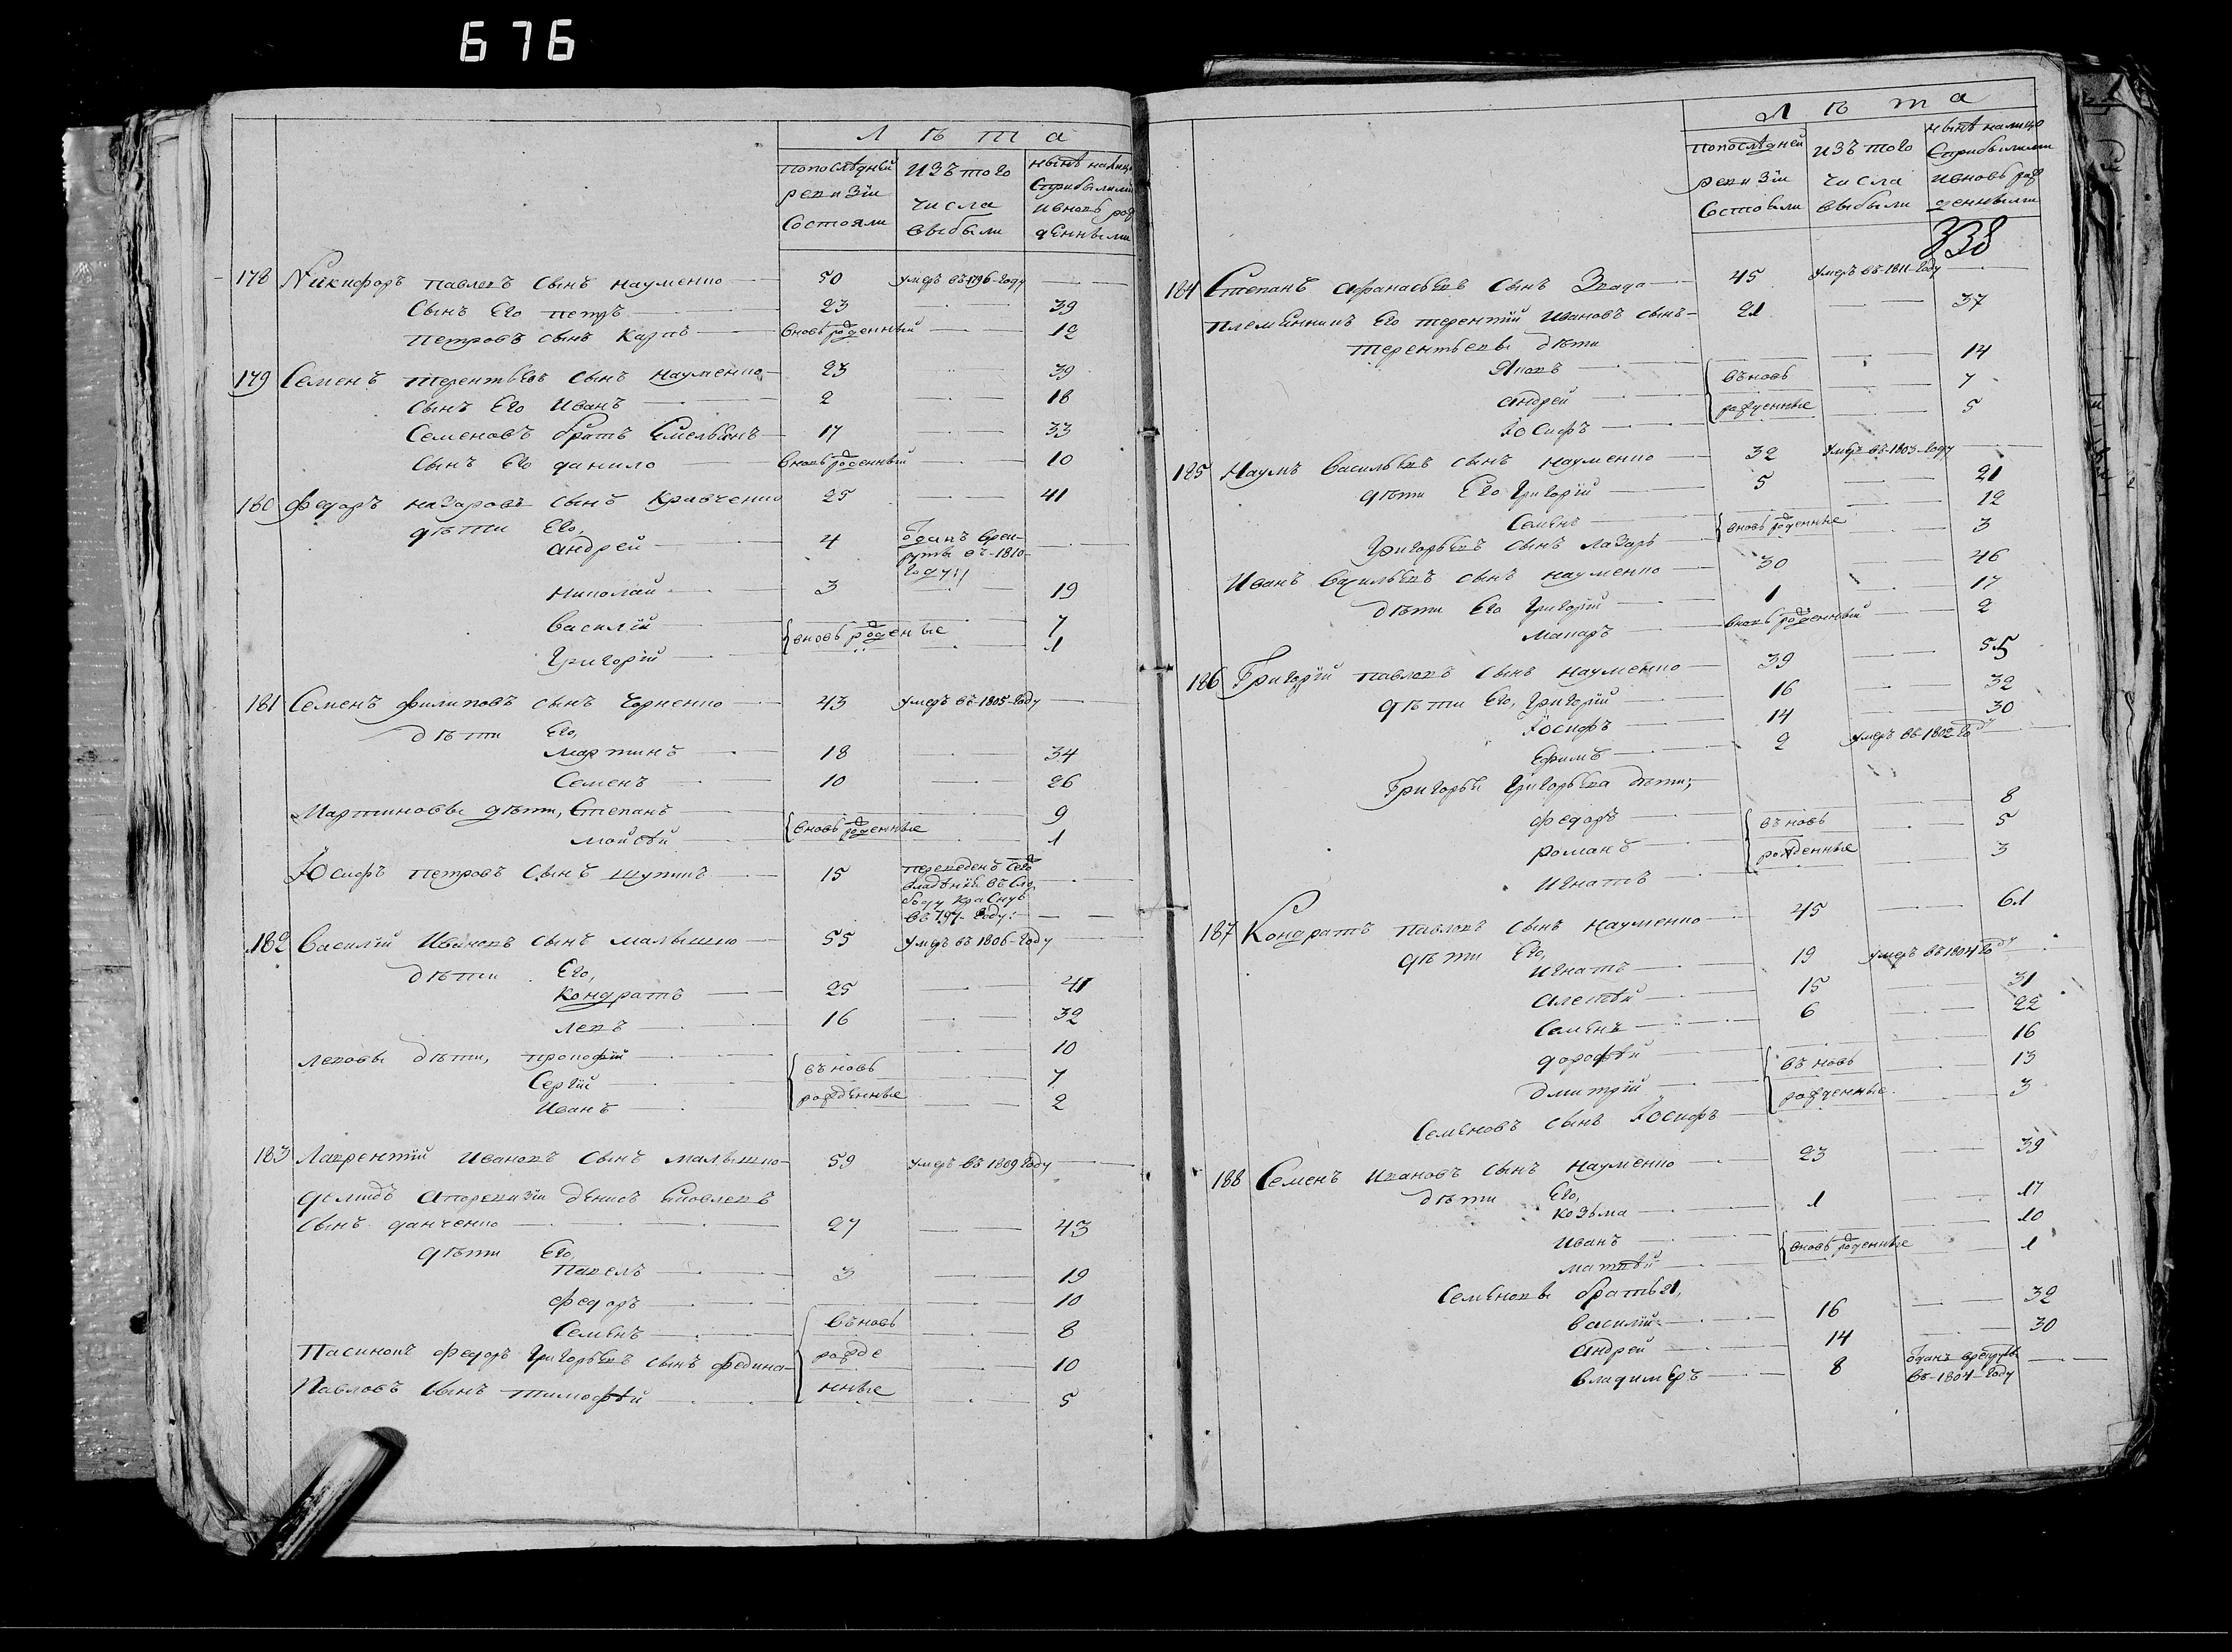 676
Лѣта
по послѣдней ревизiи состояли
изъ того числа выбыли
нынѣ налицо съ прибылыми и вновь рожденными
178 Никифоръ павловъ сынъ науменко 50 умеръ въ 796 году
сынъ Его петръ 23 39
петровъ сынъ Карпъ вновь рожденный 12
179 Семенъ терентьевъ сынъ науменко 23 39
сынъ Его Иванъ 2 18
Семеновъ братъ Емельянъ 17 33
сынъ Его данило вновь рожденный 10
180 Федоръ назаровъ сынъ Кравченко 25 41
дѣти Его,
андрей 4 отданъ врекруты въ 1810 году
николай 3 19
василiй вновь рожденые 7
григорiй 1
181 Семенъ филиповъ сынъ чорненко 43 умеръ въ 1805 году
дѣти Его,
мартинъ 18 34
Семенъ 10 26
Мартиновы дѣти, Степанъ вновь рожденные 9
мойсѣй 1
Iосифъ петровъ сынъ 15 переведенъ
въ 797 году
182 Василiй Ивановъ сынъ малышко 55 умеръ въ 1806 году
дѣти Его,
кондратъ 25 41
левъ 16 32
левовы дѣти, прокофiй 10
Сергiй въновь 7
Иванъ рожденные 2
183 Лаврентiй Ивановъ сынъ малышко 59 умеръ въ 1809 году
денисъ Яковлевъ
сынъ данченко 27 43
дѣти Его,
павелъ 3 19
федоръ 10
Семенъ въновь 8
Пасинокъ федоръ григорьевъ сынъ рожде 10
Павловъ сынъ тимофѣй нные 5
Лѣта
по послѣдней ревизiи состояли
изъ того числа выбыли
нынѣ налицо съ прибылыми и вновь рожденными
338
184 Степанъ афанасьевъ сынъ 45 умеръ въ 1811 году
племянникъ Его терентiй Ивановъ сынъ 21 37
терентьевы дѣти
Яковъ 14
андрей въновь рожденные 7
Iосифъ 5
185 Наумъ васильевъ сынъ науменко 32 умеръ въ 1803 году
дѣти Его григорiй 5 21
Семенъ вновь рожденные 12
григорьевъ сынъ лазарь 3
Иванъ васильевъ сынъ науменко 30 46
дѣти Его григорiй 1 17
макаръ вновь рожденный 2
186 Григорiй павловъ сынъ науменко 39 55
дѣти Его, григорiй 16 32
Iосифъ 14 30
Ефимъ 2 умеръ въ 1802 году
Григорья григорьева дѣти;
федоръ 8
романъ въновь рожденные 5
игнатъ 3
187 Кондратъ павловъ сынъ науменко 45 61
дѣти Его,
игнатъ 19 умеръ въ 1804 году
алексѣй 15 31
Семенъ 6 22
дорофѣй 16
дмитрiй въновь рожденные 13
Семеновъ сынъ Iосифъ 3
188 Семенъ Ивановъ сынъ науменко 23 39
дѣти Его,
козьма 1 17
Иванъ 10
матвѣй вновь рожденные 1
Семеновы братья,
василiй 16 32
андрей 14 30
владимѣръ 8 отданъ врекруты въ 1804 году